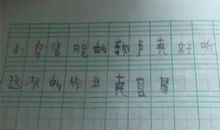 小李清脆的歌声真好听
这次的作业真容易